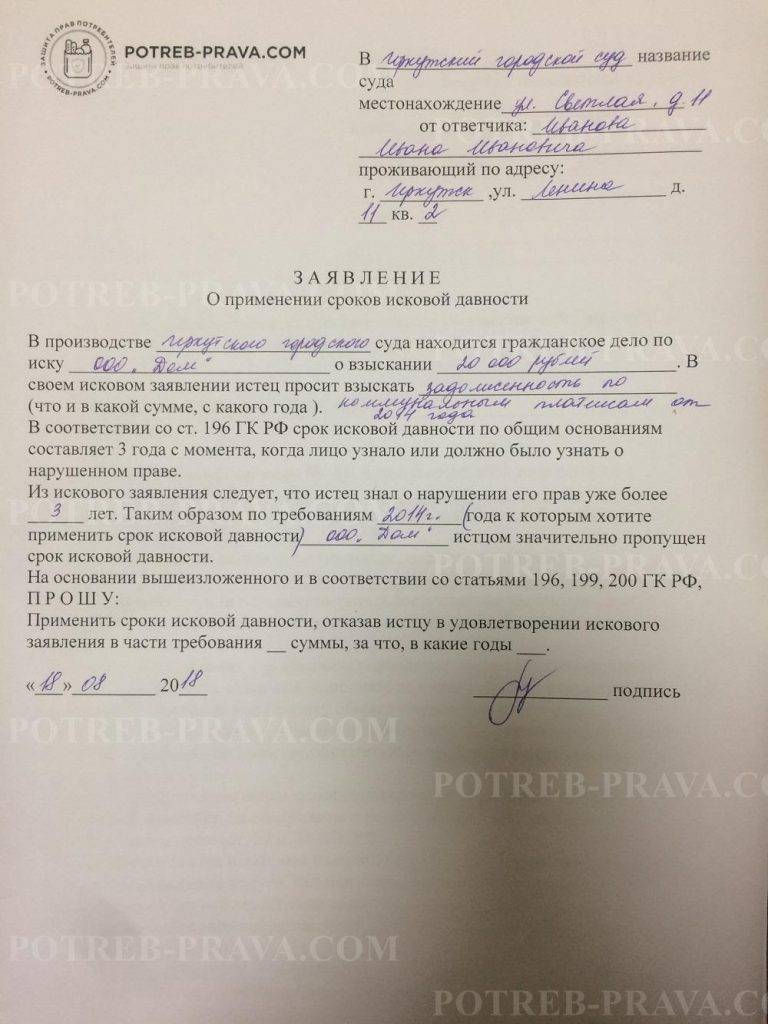 ЗАЩИТА ПРАВ ПОТРЕБИТЕЛЕЙ
POTREB-PRAVA.COM
POTREB-PRAVA.COM
Защита прав потребителей
В Иркутский городской суд название
суда
местонахождение ул. Светлая, д. 11
от ответчика: Иванова
Ивана Ивановича
проживающий по адресу:
г. Иркутск ,ул. Ленина д.
11 кв. 2
ЗАЯВЛЕНИЕ
О применении сроков исковой давности
В производстве Иркутского городского суда находится гражданское дело по
иску ООО „Дом“ о взыскании 20 000 рублей. В
своем исковом заявлении истец просит взыскать задолженность по
(что и в какой сумме, с какого года ). коммунальным платежам от
2014 года
В соответствии со ст. 196 ГК РФ срок исковой давности по общим основаниям
составляет 3 года с момента, когда лицо узнало или должно было узнать о
нарушенном праве.
Из искового заявления следует, что истец знал о нарушении его прав уже более
3 лет. Таким образом по требованиям 2014г. (года к которым хотите
применить срок исковой давности) ООО „Дом“ истцом значительно пропущен
срок исковой давности.
На основании вышеизложенного и в соответствии со статьями 196, 199, 200 ГК РФ,
П Р О Ш У:
Применить сроки исковой давности, отказав истцу в удовлетворении искового
заявления в части требования __ суммы, за что, в какие годы ___.
«18» 08 2018
подпись
POTREB-PRAVA.COM
POTREB-PRAVA.COM
POTREB-PRAVA.COM
POTREB-PRAVA.COM